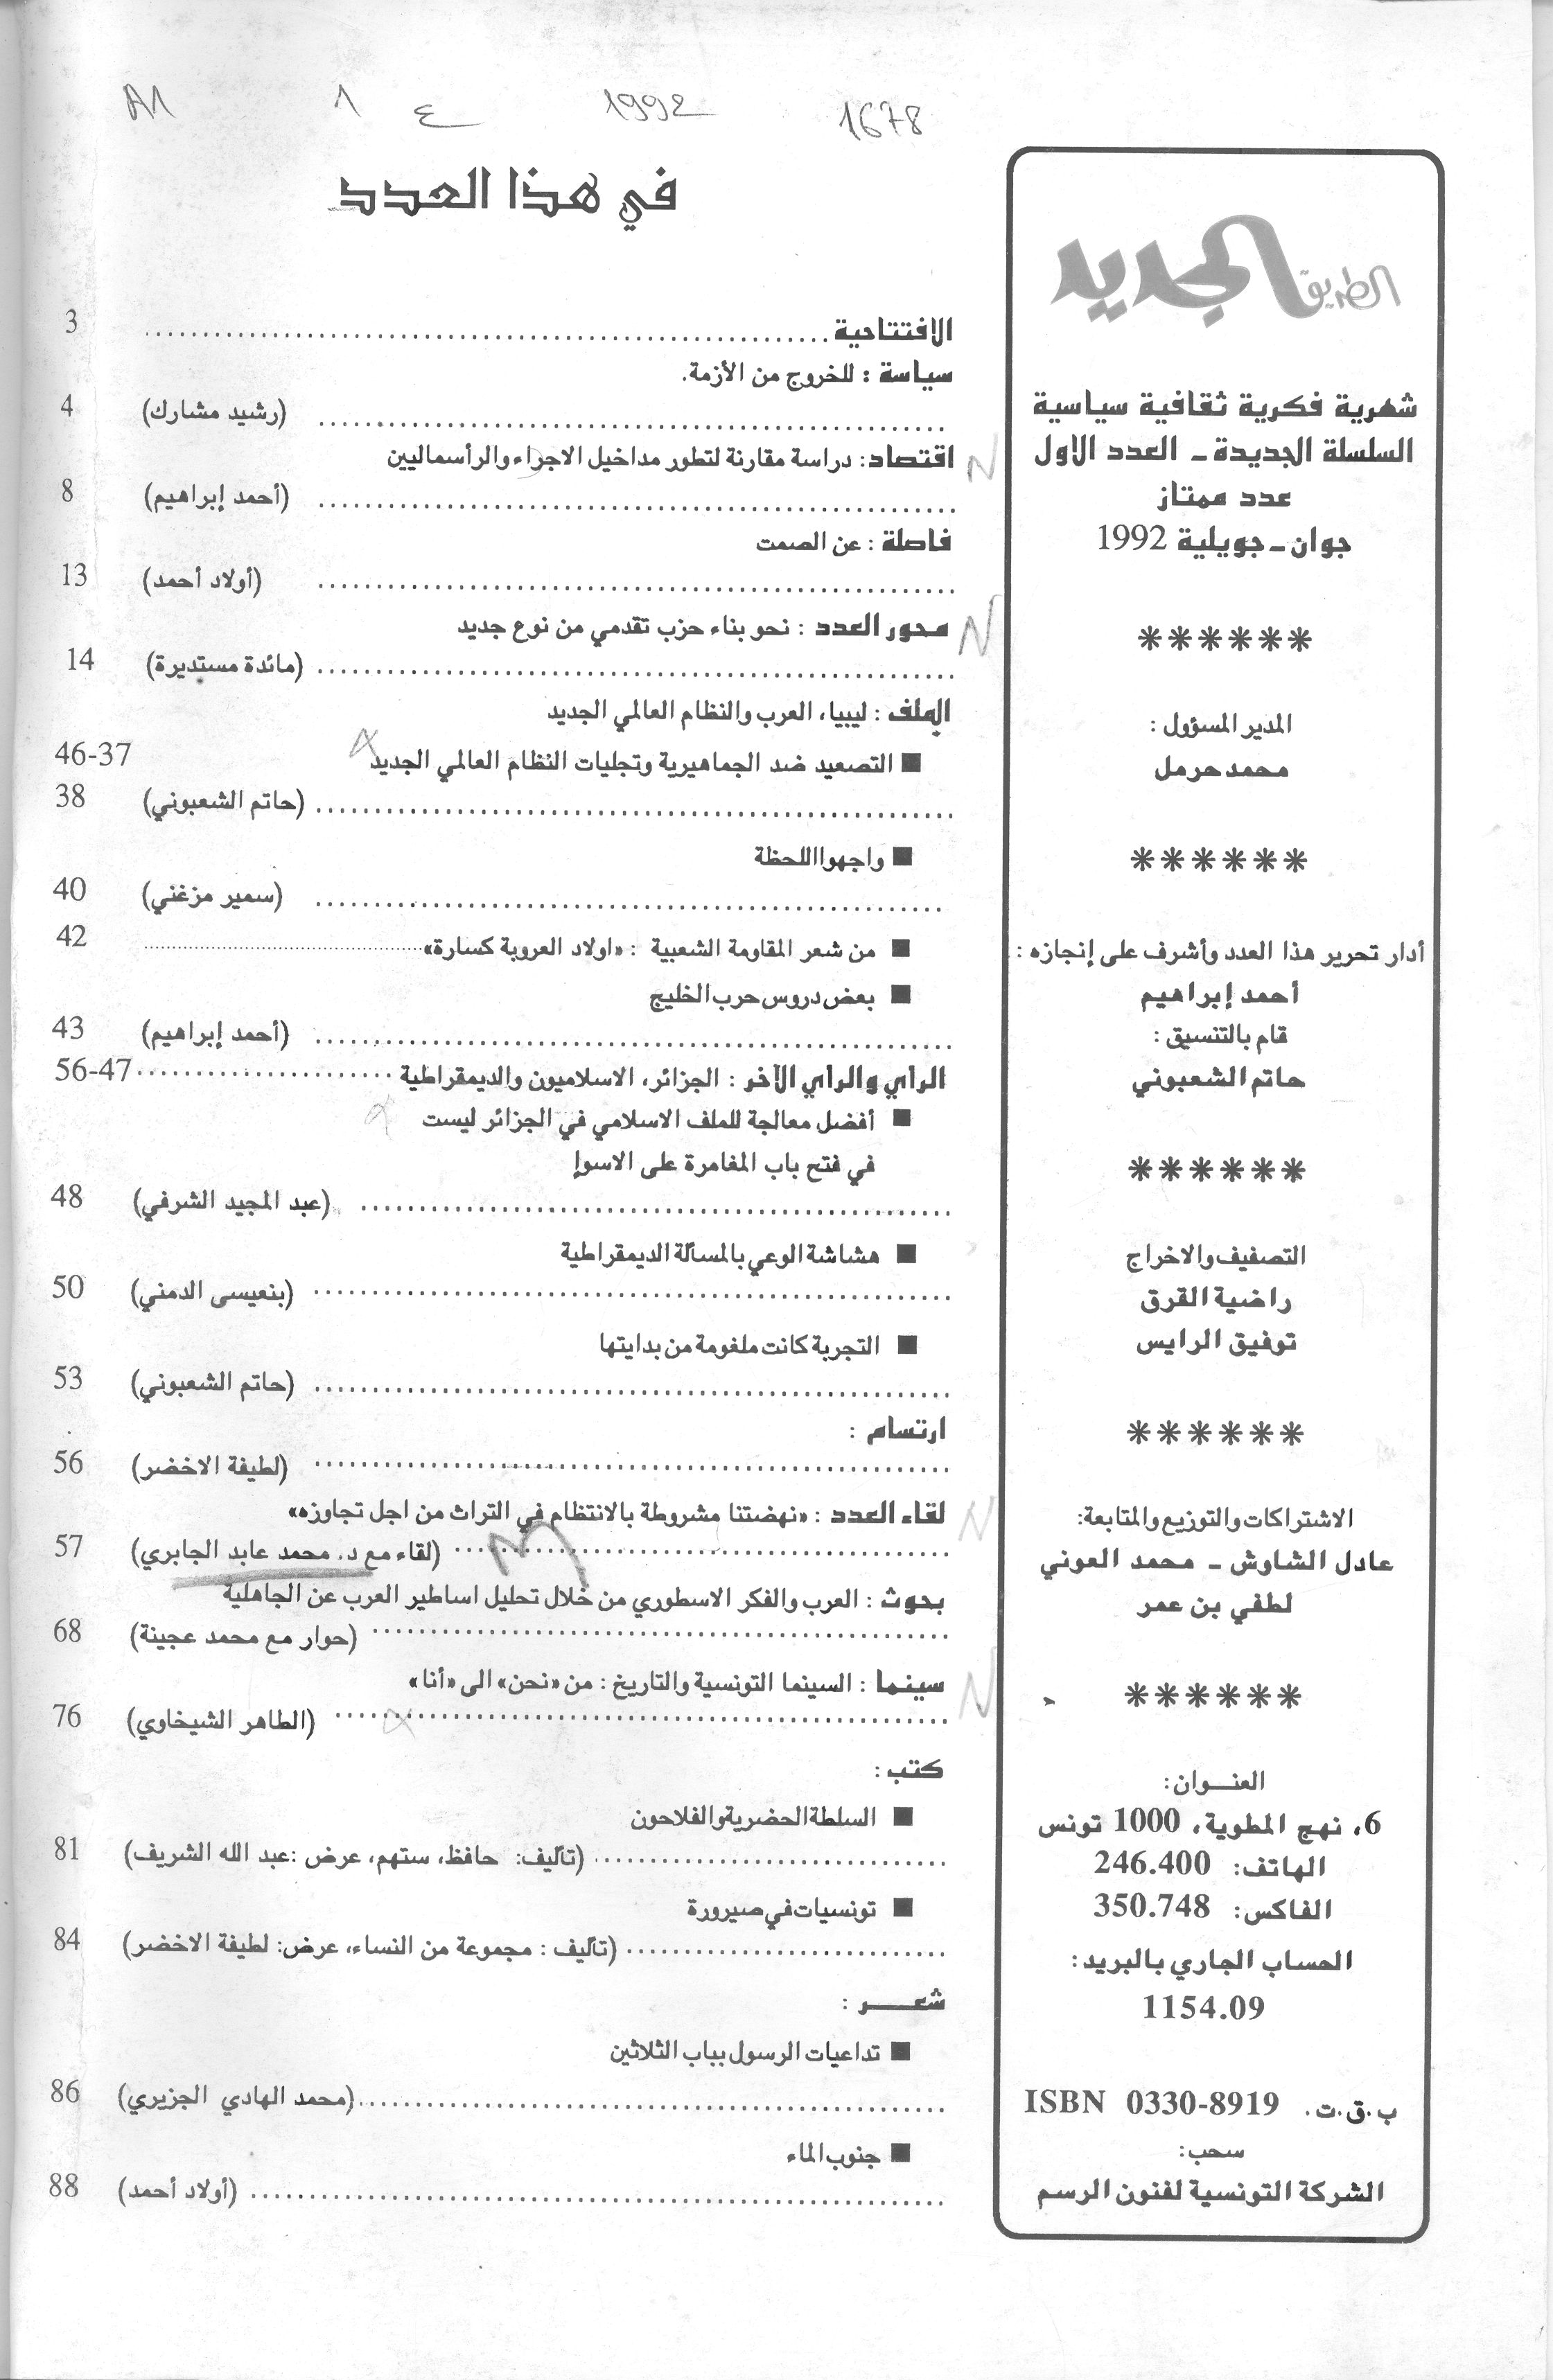 1678 1992 ع 1 A1
الطريق الجديد
شهرية فكرية ثقافية سياسية
السلسلة الجديدة - العدد الاول
عدد ممتاز
جوان - جويلية 1992
******
المدير المسؤول :
محمد حرمل
******
أدار تحرير هذا العدد وأشرف على إنجازه :
أحمد إبراهيم
قام بالتنسيق :
حاتم الشعبوني
******
التصفيف والاخراج
راضية القرق
توفيق الرايس
******
الاشتراكات والتوزيع والمتابعة:
عادل الشاوش - محمد العوني
لطفي بن عمر
******
العنـــوان:
6، نهج المطوية، 1000 تونس
الهاتف: 246.400
الفاكس: 350.748
الحساب الجاري بالبريد:
1154.09
ب.ق.ت. ISBN 0330-8919
سحب:
الشركة التونسية لفنون الرسم
في هذا العدد
الافتتاحية ........ 3
سياسة : للخروج من الأزمة.
........ (رشيد مشارك) 4
اقتصاد: دراسة مقارنة لتطور مداخيل الاجراء والرأسماليين
........ (أحمد إبراهيم) 8
فاصلة : عن الصمت
........ (أولاد أحمد) 13
محور العدد : نحو بناء حزب تقدمي من نوع جديد
........ (مائدة مستديرة) 14
الملف : ليبيا، العرب والنظام العالمي الجديد
■ التصعيد ضد الجماهيرية وتجليات النظام العالمي الجديد 46-37
........ (حاتم الشعبوني) 38
■ واجهوا اللحظة
........ (سمير مزغني) 40
■ من شعر المقاومة الشعبية : «اولاد العروبة كسارة» ........ 42
■ بعض دروس حرب الخليج
........ (أحمد إبراهيم) 43
الرأي والرأي الآخر : الجزائر، الاسلاميون والديمقراطية ........ 56-47
■ أفضل معالجة للملف الاسلامي في الجزائر ليست
في فتح باب المغامرة على الاسوإ
........ (عبد المجيد الشرفي) 48
■ هشاشة الوعي بالمسألة الديمقراطية
........ (بنعيسى الدمني) 50
■ التجربة كانت ملغومة من بدايتها
........ (حاتم الشعبوني) 53
ارتسام :
........ (لطيفة الاخضر) 56
لقاء العدد : «نهضتنا مشروطة بالانتظام في التراث من اجل تجاوزه»
........ (لقاء مع د. محمد عابد الجابري) 57
بحوث : العرب والفكر الاسطوري من خلال تحليل اساطير العرب عن الجاهلية
........ (حوار مع محمد عجينة) 68
سينما : السينما التونسية والتاريخ : من «نحن» الى «أنا»
........ (الطاهر الشيخاوي) 76
كتب :
■ السلطة الحضرية والفلاحون
........ (تأليف: حافظ، ستهم، عرض :عبد الله الشريف) 81
■ تونسيات في صيرورة
........ (تأليف : مجموعة من النساء، عرض: لطيفة الاخضر) 84
شعـــر :
■ تداعيات الرسول بباب الثلاثين
........ (محمد الهادي الجزيري) 86
■ جنوب الماء
........ (أولاد أحمد) 88